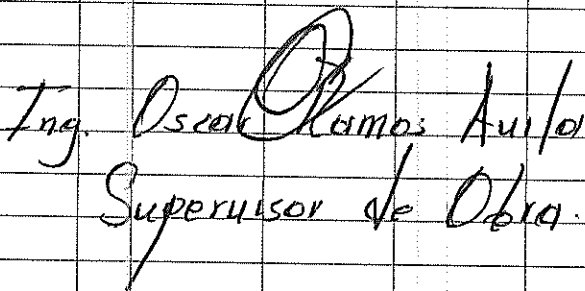 Ing. Oscar Ramos Avila
Supervisor de Obra.